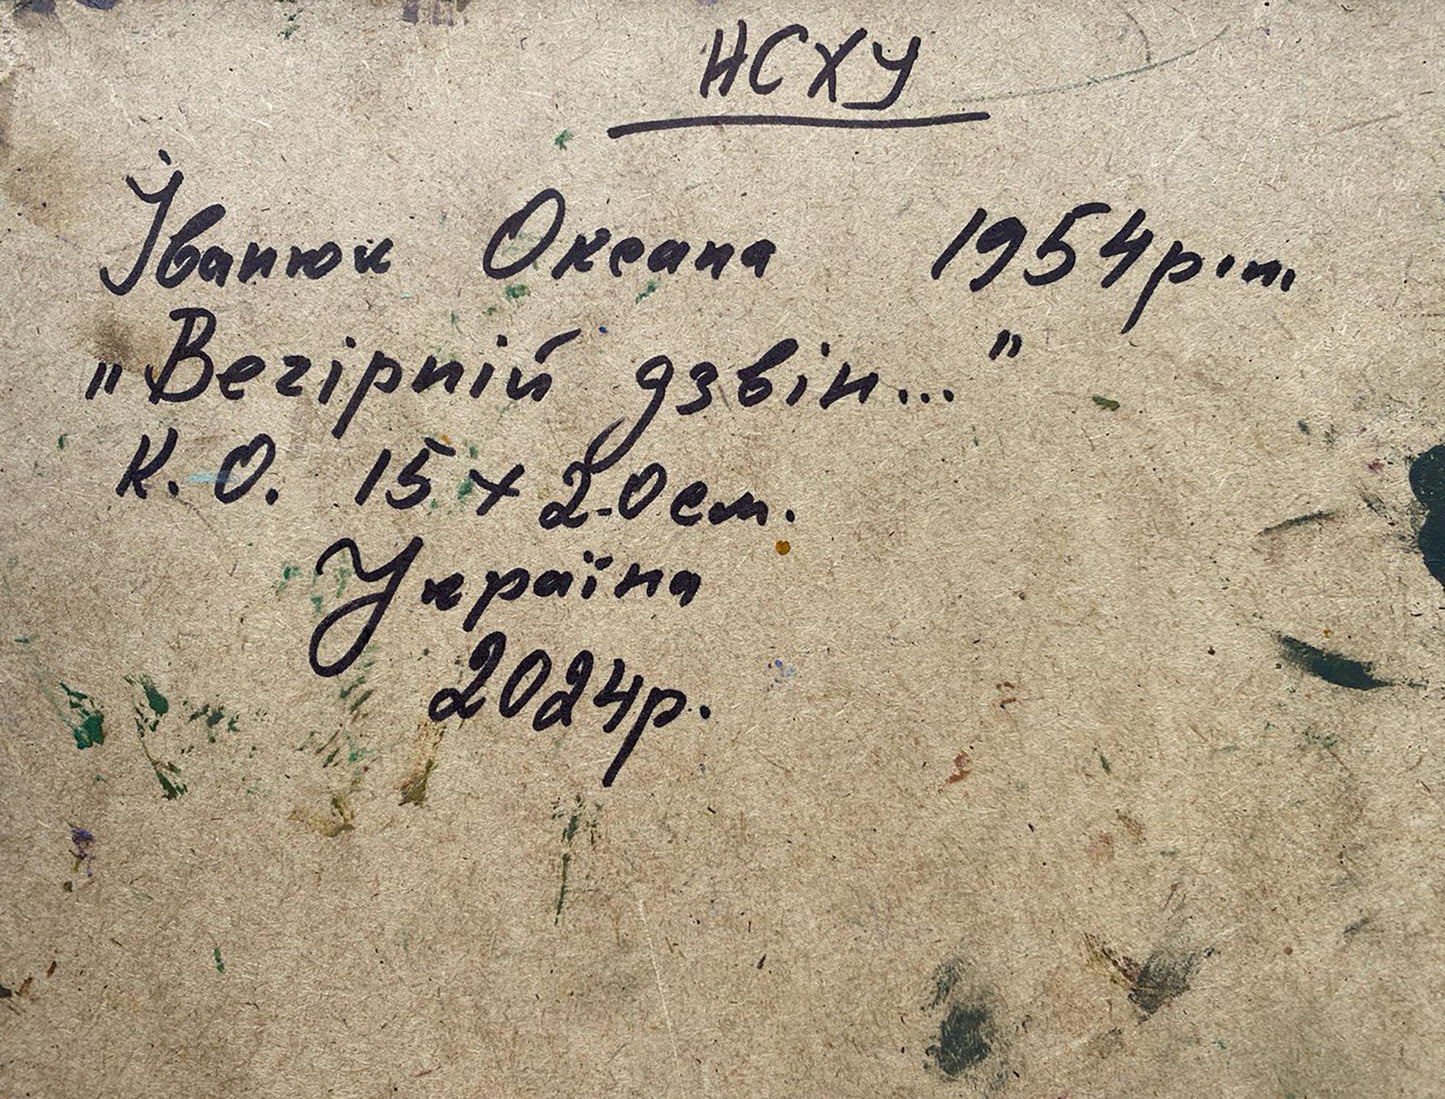 НСХУ
Іванюк Оксана 1954р.н.
„Вечірній дзвін..."
К.О. 15 х 20 см.
Україна
2024р.